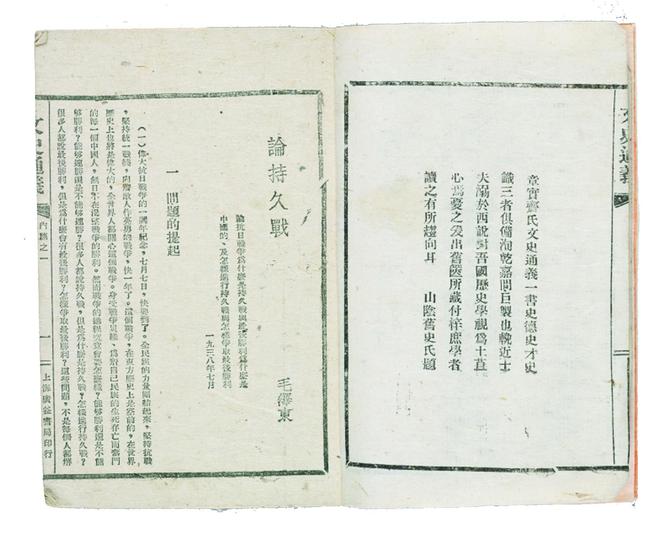 文史通義
章實齋氏文史通義一書史德史才史
識三者俱備洵乾嘉間巨製也輓近士
夫溺於西說對吾國歷史學視爲土苴
心焉憂之爰出舊篋所藏付梓庶學者
讀之有所趨向耳　山陰舊史氏題
論持久戰
毛澤東
論抗日戰爭爲什麼是持久戰與最後勝利爲什麼是
中國的、及怎樣進行持久戰與怎樣爭取最後勝利
一九三八年七月
一　問題的提起
（一）偉大抗日戰爭的一週年紀念，七月七日，快要到了。全民族的力量團結起來，堅持抗戰
，堅持統一戰線，向着敵人作英勇的戰爭，快一年了。這個戰爭，在東方歷史上是空前的，在世界
歷史上也將是偉大的，全世界人都關心這個戰爭。身受戰爭災難、爲着自己民族的生死存亡而奮鬥
的每一個中國人，無日不在渴望戰爭的勝利。然而戰爭的過程究竟會要怎麼樣？能夠勝利還是不能
夠勝利？能夠速勝還是不能夠速勝？很多人都說持久戰，但是爲什麼是持久戰？怎樣進行持久戰？
很多人都說最後勝利，但是爲什麼會有最後勝利？怎樣爭取最後勝利？這些問題，不是每個人都解
文史通義　內篇之一　一　上海廣益書局印行